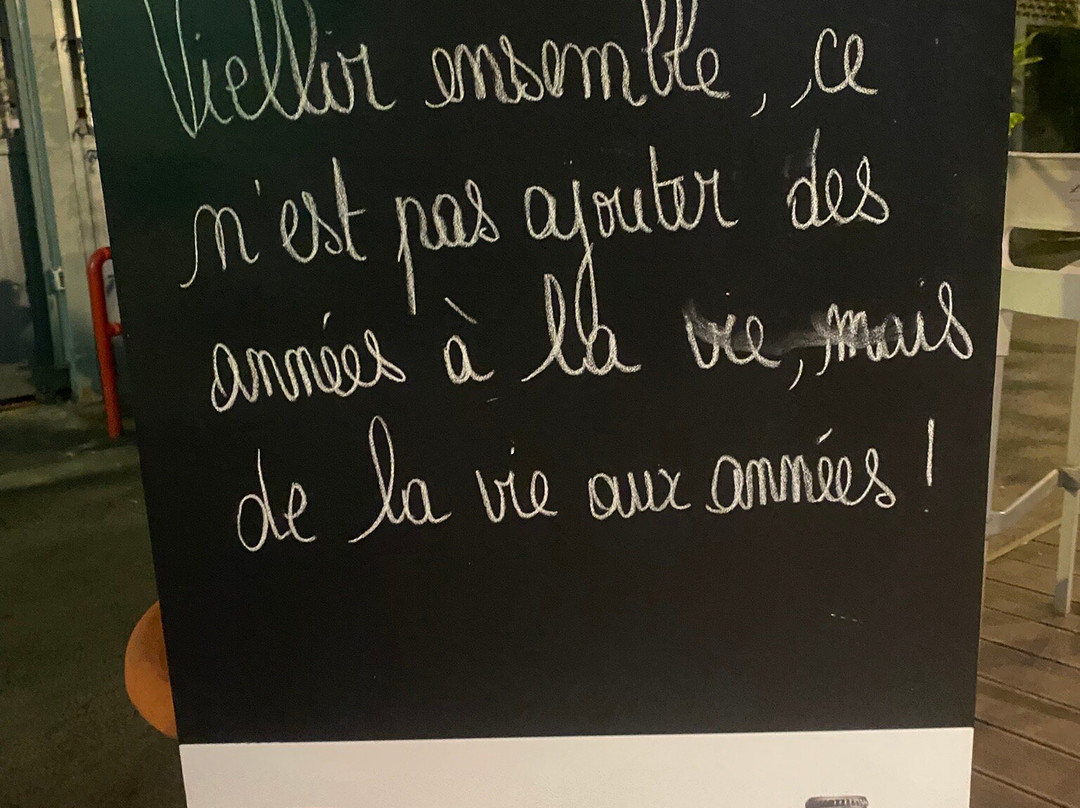 Viellir ensemble, ce
n'est pas ajouter des
années à la vie, mais
de la vie aux années !